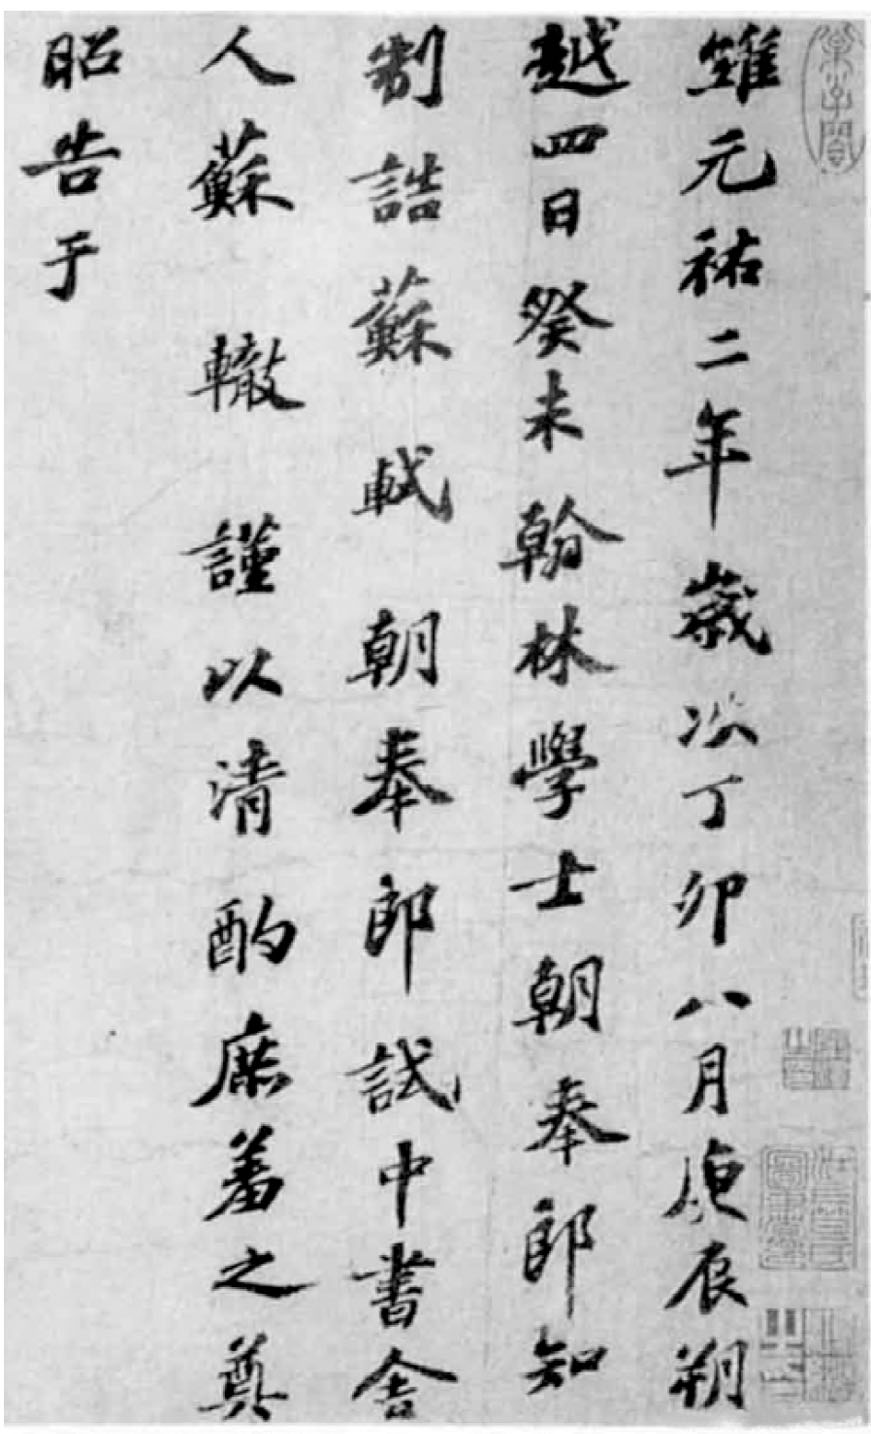 維元祐二年歲次丁卯八月庚辰朔
越四日癸未翰林學士朝奉郎知
制誥蘇軾朝奉郎試中書舍
人蘇轍謹以清酌庶羞之奠
昭告于